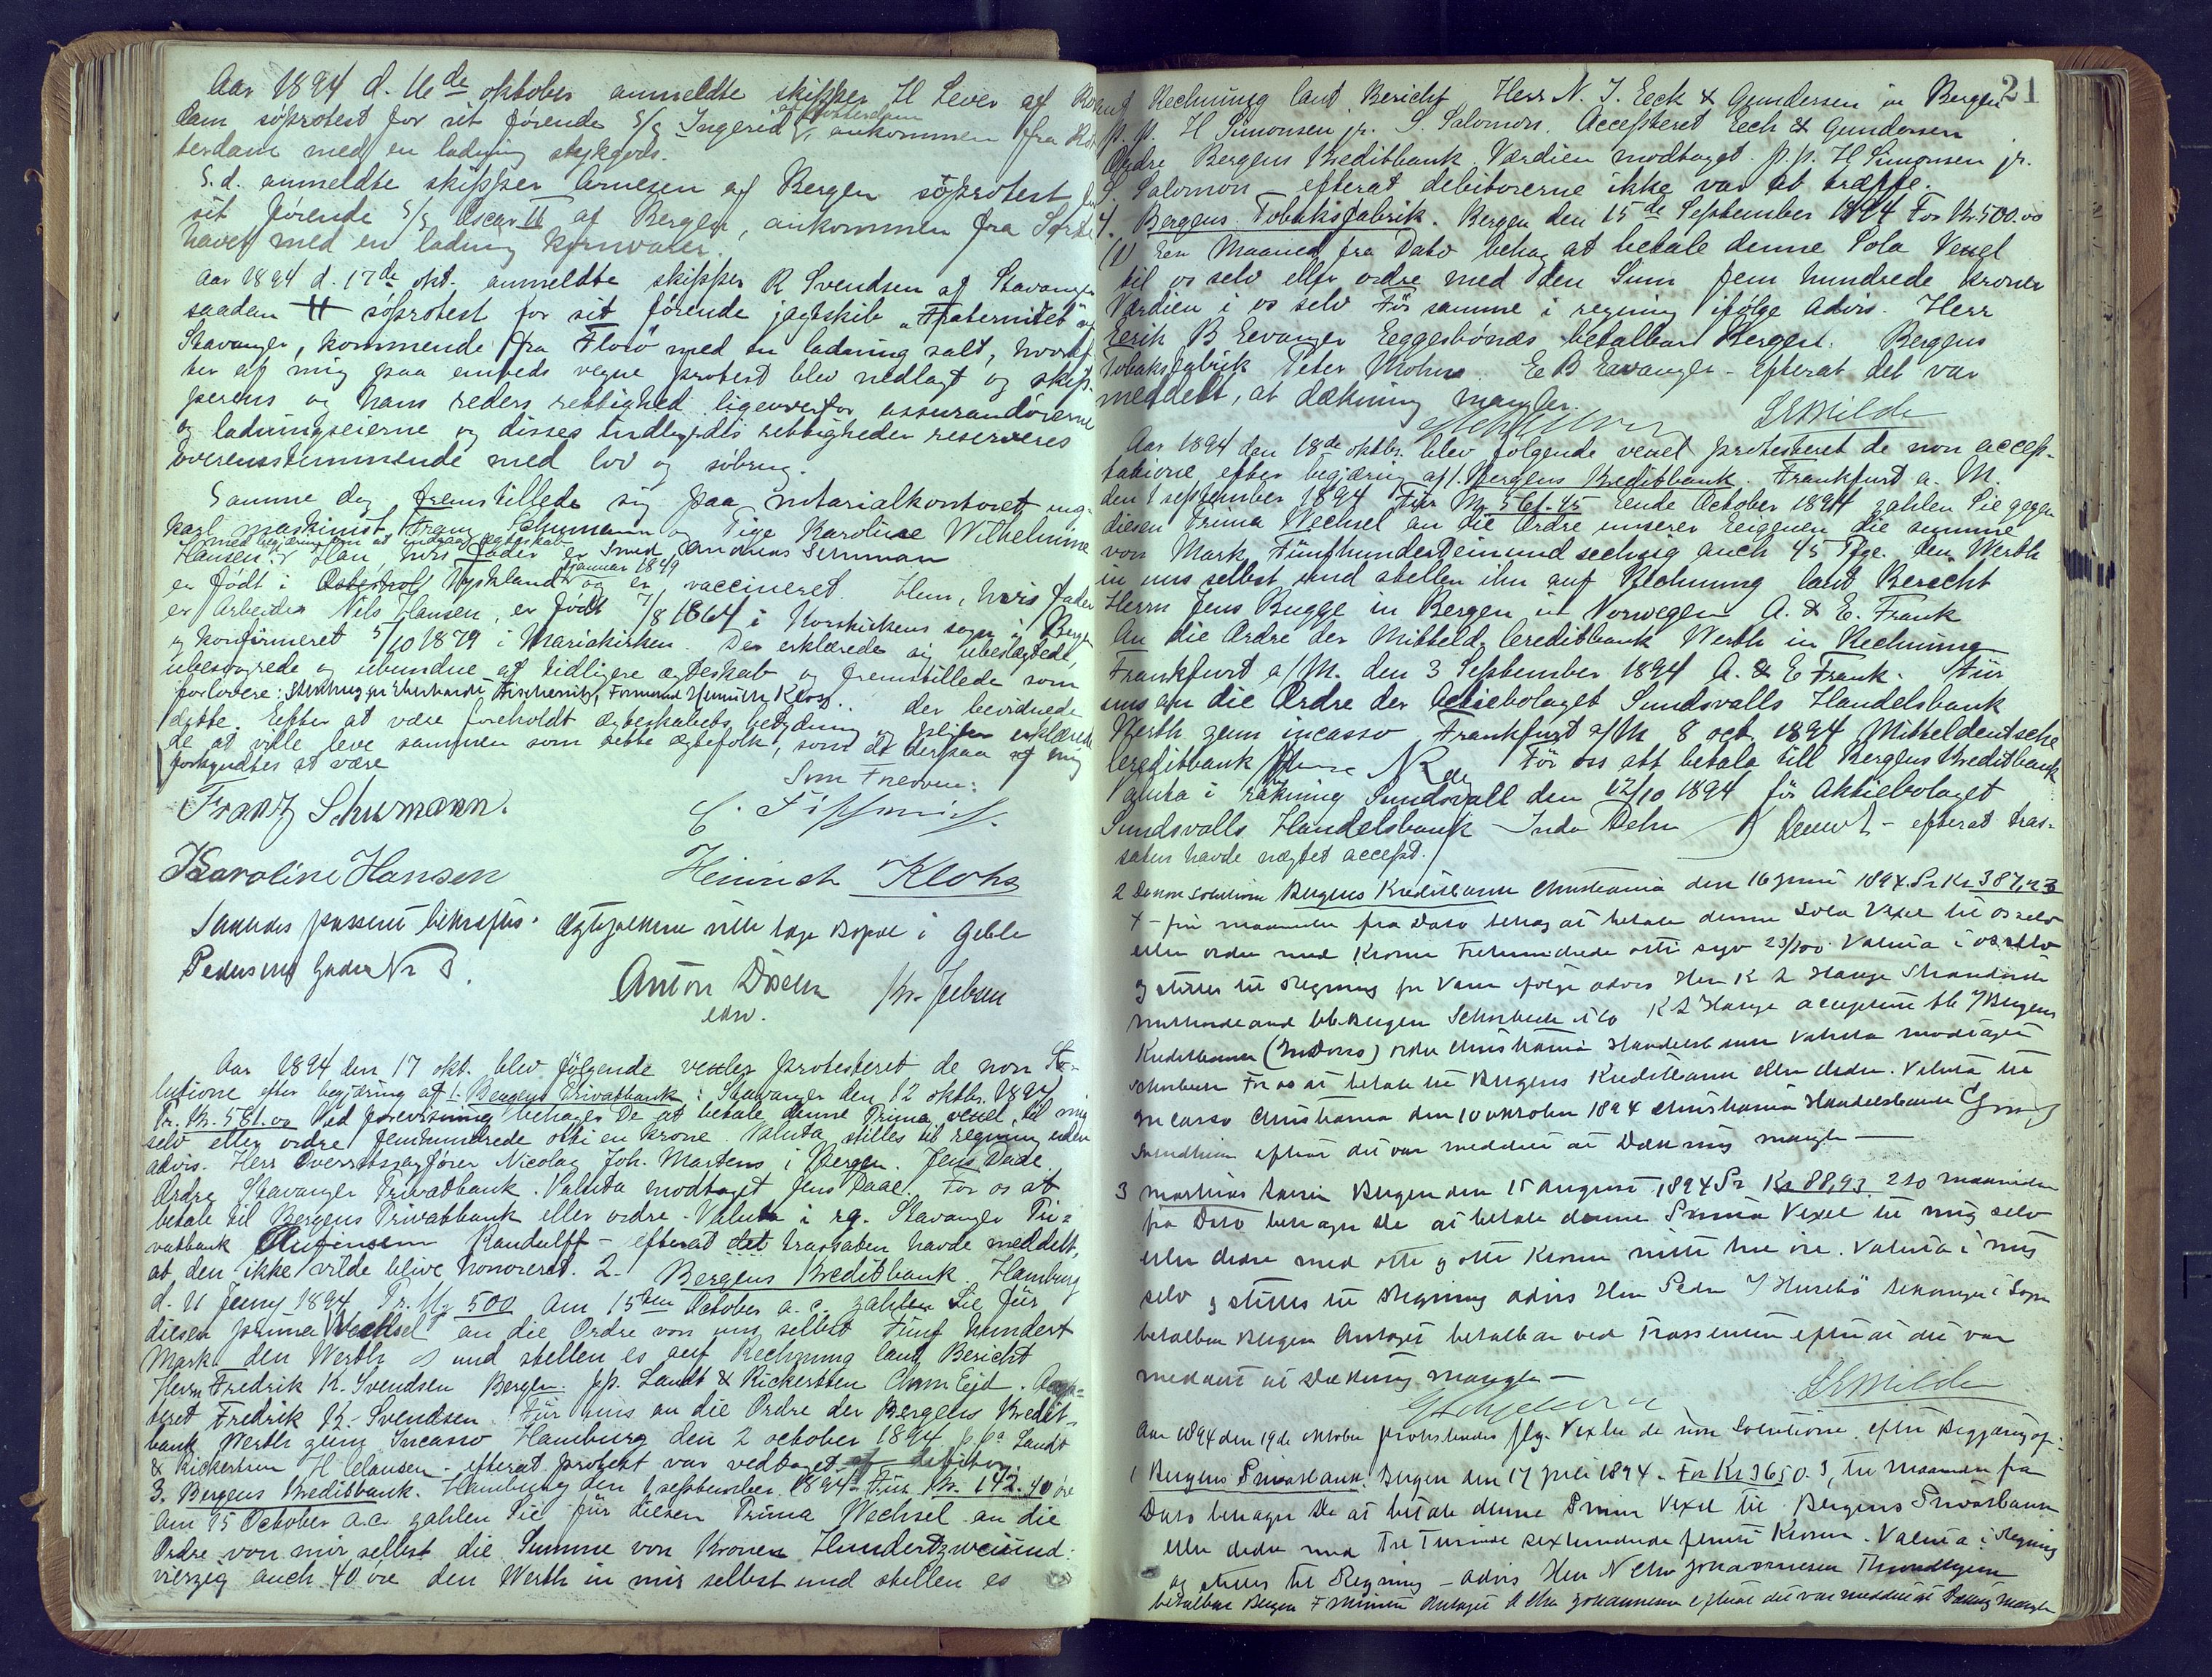 Aar 1894 d. 16de oktober anmeldte skipper H Lever af Rot
dam söprotest for sit förende S/S Ingerid af Rotterdam ankommen fra Rot
terdam med en ladning stykgods.
S.d. anmeldte skipper Arnesen af Bergen söprotest for
sit förende S/S Oscar II af Bergen, ankommen fra Sorte
havet med en ladning kornvarer.
Aar 1894 d. 17de okt. anmeldte skipper R Svendsen af Stavanger
saadan söprotest for sit förende jagtskib "Fraternitet" af
Stavanger, kommende fra Florö med en ladning salt, hvoref
ter af mig paa embeds vegne protest blev nedlagt og skip-
perens og hans reders rettighed ligeoverfor assurandörerne
og ladningseierne og disses indbyrdes rettigheder reserveres
overensstemmende med lov og söbrug.
Samme dag fremstillede sig paa notarialkontoret ung-
karl maskinist Franz Schumann og Pige Karoline Wilhelmine
Hansen med begjæring om at indgaa ægteskab. Han hvis fader er Smed Andreas
er født i Tyskland januar 1849 og er vaccineret. Hun, hvis fader
er Arbeider Nils Hansen, er født 7/8 1864 i Korskirkens sogn i Bergen
og konfirmeret 5/10 1879 i Mariakirken. De erklærede sig ubeslægtede,
ubesvogrede og ubundne af tidligere ægteskab og fremstillede som
forlovere: Eberhardt Formand Heinrich Kloss der bevidnede
dette. Efter at være foreholdt ægteskabets betydning og pligter erklærede
de at ville leve sammen som rette ægtefolk, som de derpaa af mig
forkyndtes at være
Som Forlovere:
Frantz Schumann.
Karoline Hansen Heinrich Klohs
Saaledes passeret bekræftes. Ægtefolkene ville tage Bopæl i Geble
Pedersens Gade Nr 8.
Anton edsv. Kr. Jebsen
Aar 1894 den 17 okt. blev fölgende vexler protesteret de non So-
lutione efter begjæring af 1. Bergens Privatbank: Stavanger den 12 oktbr. 1894
Pr. Kr. 581.00 Ved forevisning behager De at betale denne Prima vexel til mig
selv eller ordre femhundrede otti en krone. Valuta stilles til regning uden
advis. Herr Overretssagfører Nicolay Joh. Martens i Bergen. Jens Daae.
Ordre Stavanger Privatbank. Valuta modtaget Jens Daae. For os at
betale til Bergens Privatbank eller ordre. Valuta i rg. Stavanger Pri-
vatbank Kandulff - efterat det trassaten havde meddelt,
at den ikke vilde blive honoreret. 2. Bergens Kreditbank. Hamburg
d. 11 Juny 1894 Pr. M. 500 Am 15ten October a.c. zahlen Sie für
diesen prima Wechsel an die Ordre von uns selbst Fünf hundert
Mark den Werth und stellen es auf Rechnung laut Bericht
Herrn Fredrik K. Svendsen Bergen. pp. Landt & Rickertsen Accep-
teret Fredrik K. Svendsen. Für uns an die Ordre der Bergens Kredit-
bank Werth zum Incasso Hamburg den 2 october 1894 p.pa Landt
& Rickertsen H Clausen - efterat protest var vedtaget af debitor.
3. Bergens Kreditbank. Hamburg den 1 september 1894. Für Kr. 142.40 öre
Am 15 October a.c. zahlen Sie für diesen Prima Wechsel an die
Ordre von mir selbst die Summe von Kronen Hundertzweiund-
vierzig auch 40 öre den Werth in mir selbst und stellen es
21
auf Rechnung laut Bericht Herr N. J. Eeck & Gundersen in Bergen
p.p. H Simonsen jr. S. Salomon. Accepteret Eeck & Gundersen
Ordre Bergens Kreditbank Værdien modtaget. p.p. H Simonsen jr.
S. Salomon - efterat debitorerne ikke var at træffe.
4. Bergens Tobaksfabrik. Bergen den 15de September 1894 For Kr. 500.00
(1) Een Maaned fra Dato behag at betale denne Sola Vexel
til os selv eller ordre med den Sum fem hundrede kroner
Værdien i os selv För samme i regning ifölge advis. Herr
Eerik B Eevanger Eeggesbønæs betalbar Bergen. Bergens
Tobaksfabrik Peter Mohn. E B Eevanger - efterat det var
meddelt, at dækning mangler.
S E Milde
Aar 1894 den 18de oktbr. blev fölgende vexel protesteret de non accep-
tatione efter begjæring af 1. Bergens Kreditbank. Frankfurt a. M.
den 1 september 1894 Für M. 561.45 Eende October 1894 zahlen Sie gegen
diesen Prima Wechsel an die Ordre unserer Eeigenen die summe
von Mark Fünfhunderteinundsechzig auch 45 Pfge. den Werth
in uns selbst und stellen ihn auf Rechnung laut Bericht
Herrn Jens Bugge in Bergen in Norwegen A. & E. Frank
An die Ordre der Mitteld. Creditbank Werth in Rechnung
Frankfurt a/M. den 3 September 1894 A. & E Frank. Für
uns an die Ordre der Actiebolaget Sundsvalls Handelsbank
Werth zum incasso Frankfurt a/M 8 oct. 1894 Mitteldeutsche
Creditbank För oss att betala till Bergens Kreditbank
Valuta i räkning Sundsvall den 12/10 1894 för Aktiebolaget
Sundsvalls Handelsbank - efterat tras-
saten havde nægtet accept.
2 De non solutione Bergens Kreditbank Christiania den 16 Juni 1894. Pr Kr 387,23
4 - fire maaneder fra Dato behag at betale denne Sola Vexel til os selv
eller ordre med Kroner Trehundrede otti syv 23/100. Valuta i os selv
og stilles til Regning for Varer ifølge advis Herr K L Hauge
betalbar Bergen K L Hauge accepteret til Bergens
Kreditbank Ordre Christiania Handelsbank Valuta modtaget
For os at betale til Bergens Kreditbank eller Ordre. Valuta til
Incasso Christiania den 10 oktober 1894 Christiania Handelsbank
efterat det var meddelt at Dækning mangler -
3 Mathias Bergen den 15 August 1894 Pr Kr 88,93. 2 to maaneder
fra Dato behager De at betale denne Prima Vexel til mig selv
eller Ordre med otte og otti Kroner nitti tre öre. Valuta i mig
selv og stilles til Regning advis Herr Peder Husebö i Sogn
betalbar Bergen Antaget betalbar ved Trassenten efterat det var
meddelt at Dækning mangler -
S E Milde
Aar 1894 den 19de oktober protesteredes flg. Vexler de non Solutione efter Begjæring af:
1 Bergens Privatbank. Bergen den 17 Juli 1894. For Kr 3650. 3, tre Maaneder fra
Dato behager De at betale denne Prima Vexel til Bergens Privatbank
eller Ordre med Tre Tusinde sexhundrede femti Kroner. Valuta i Regning
og stilles til Regning - advis Herr Johannesen Throndhjem
betalbar Bergen Antaget Johannesen efterat det var meddelt at Dækning mangler